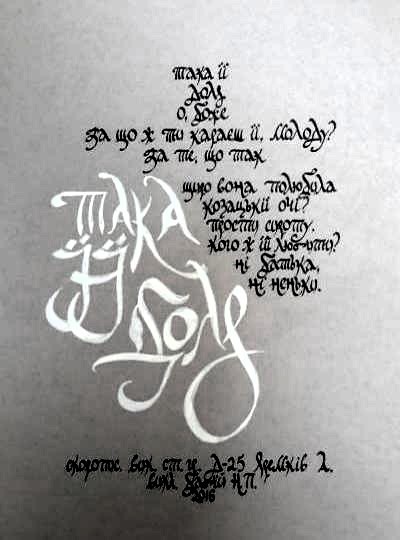 така її
доля
о, боже
За що ж ти караєш її, молоду?
За те, що так
щиро вона полюбила
козацькії очі?
прости сироту.
кого ж їй любити?
ні батька,
ні неньки.
така
її
доля
скоропис. вик. ст. гр. Д-25 Яремків
вик.
2016